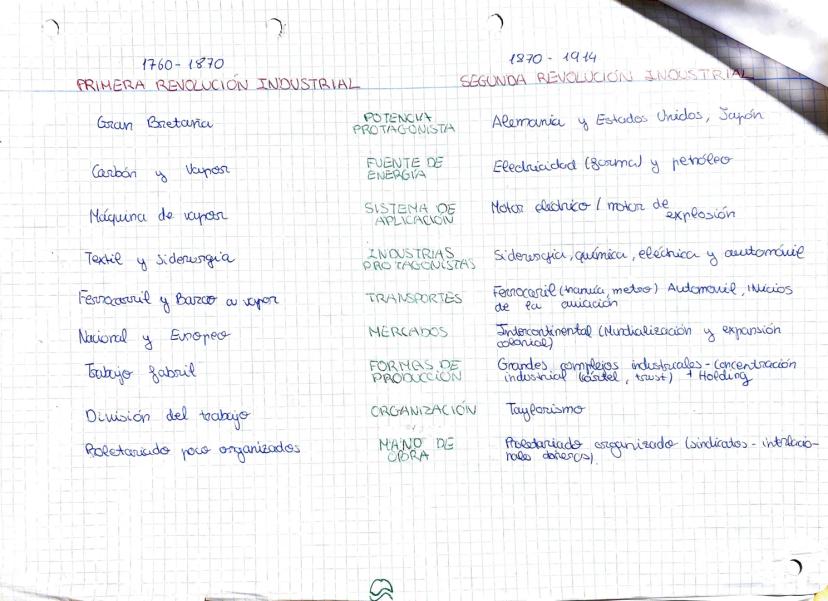 1760 - 1870
1870 - 1914
PRIMERA REVOLUCIÓN INDUSTRIAL
SEGUNDA REVOLUCIÓN INDUSTRIAL
Gran Bretaña
POTENCIA
PROTAGONISTA
Alemania y Estados Unidos, Japón
Carbón y Vapor
FUENTE DE
ENERGÍA
Electricidad (forma) y petróleo
Máquina de vapor
SISTEMA DE
APLICACIÓN
Motor eléctrico / motor de
explosión
Textil y siderurgia
INDUSTRIAS
PROTAGONISTAS
Siderurgia, química, eléctrica y automóvil
Ferrocarril y Barco a vapor
TRANSPORTES
Ferrocaril (tranvía, metro) Automovil, inicios
de la aviación
Nacional y Europeo
MERCADOS
Intercontinental (Mundialización y expansión
colonial)
Trabajo fabril
FORMAS DE
PRODUCCIÓN
Grandes complejos industriales - concentración
industrial (cártel, trust) + Holding
División del trabajo
ORGANIZACIÓN
Taylorismo
Proletariado poco organizados
MANO DE
OBRA
Proletariado organizado (sindicatos -